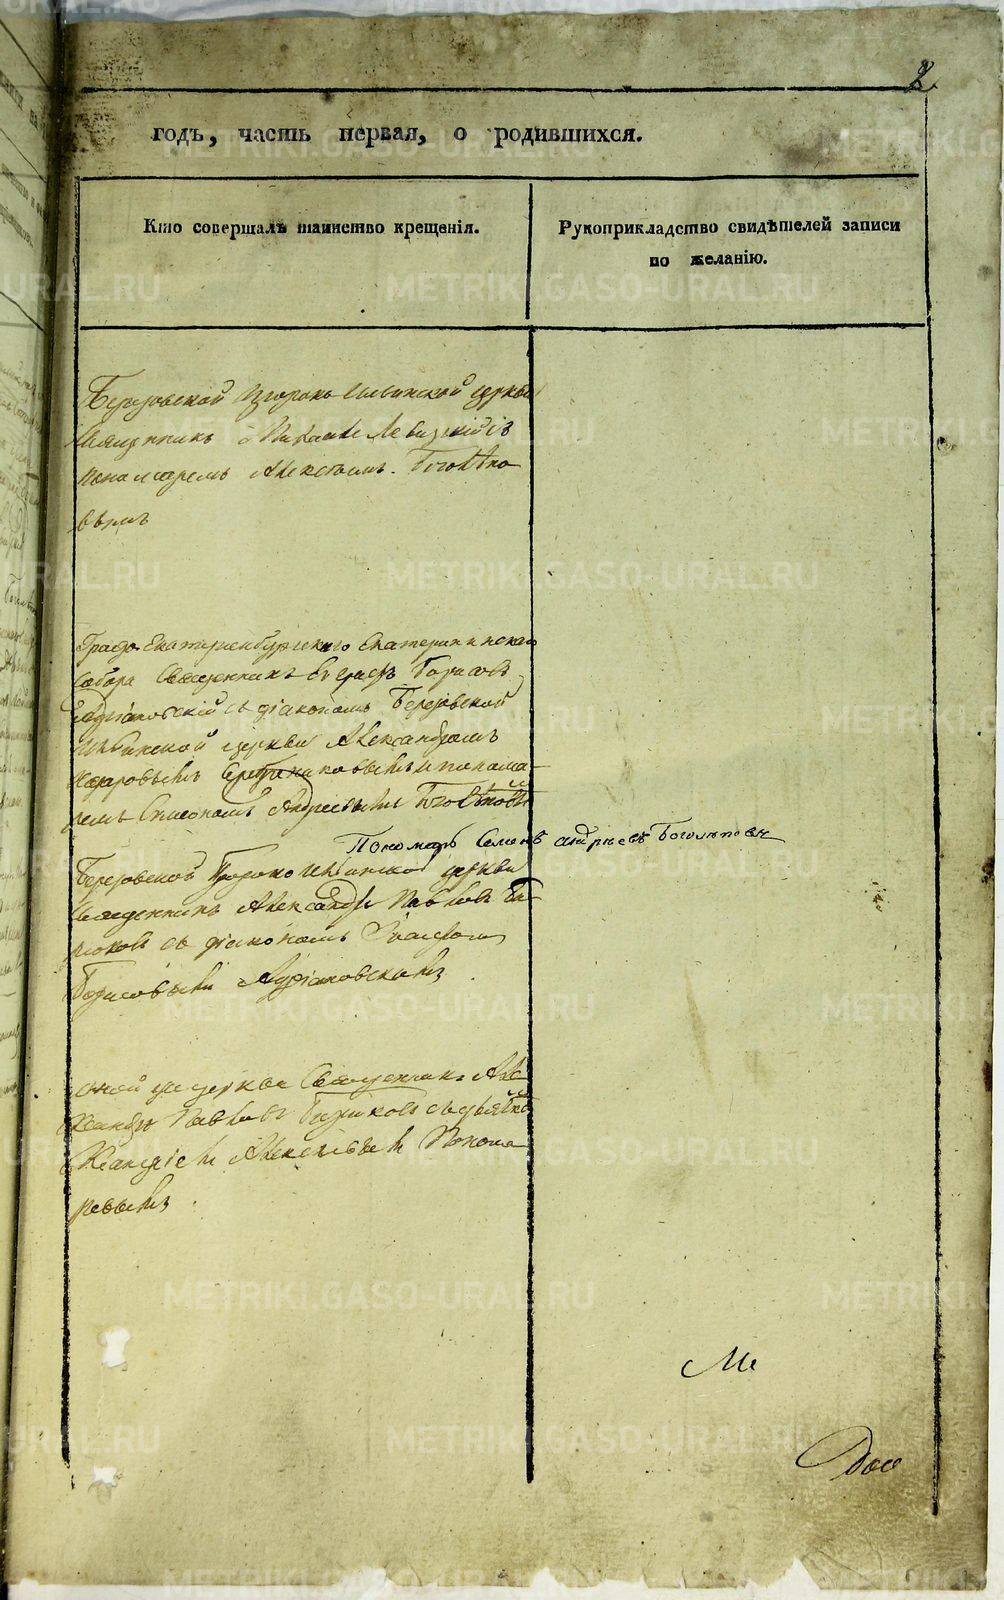 2
годъ, часть первая, о родившихся.
Кто совершалъ таинство крещенія.
Рукоприкладство свидѣтелей записи
по желанію.
Березовской Пророко Ильинской церкви
Священникъ Левицкій съ
понамаремъ Алексѣемъ Боголѣпо
вымъ
Градо Екатеринбургскаго Екатерининскаго
собора Священникъ Борисовъ
Адріановскій съ діакономъ Березовской
Ильинской церкви Александромъ
Сребрениковымъ и понама-
ремъ Симеономъ Андреевымъ Боголѣповымъ
Пономарь Семенъ Андреевъ Боголѣповъ
Березовской Пророко Ильинской церкви
Священникъ Александръ Павловъ Би-
рюковъ съ діакономъ
Борисовымъ Адріановскимъ
оной же церкви Священникъ Але
ксандръ Павловъ Бирюковъ съ
Алексѣевымъ Понома
ревымъ
METRIKI.GASO-URAL.RU